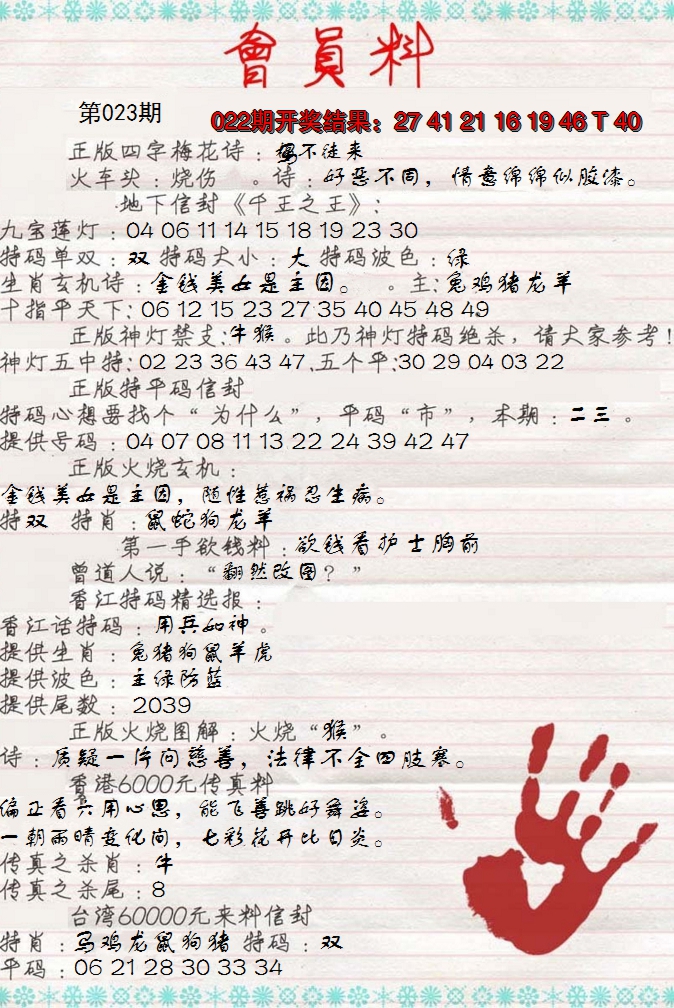 會員料
第023期
022期开奖结果：27 41 21 16 19 46 T 40
正版四字梅花诗：搗不徒来
火车头：烧伤 。诗：好恶不同，情意绵绵似胶漆。
地下信封《千王之王》：
九宝莲灯：04 06 11 14 15 18 19 23 30
特码单双：双 特码大小：大 特码波色：绿
生肖玄机诗：金钱美女是主因。 。主：兔鸡猪龙羊
十指平天下：06 12 15 23 27 35 40 45 48 49
正版神灯禁支:牛猴。此乃神灯特码绝杀，请大家参考!
神灯五中特:02 23 36 43 47.五个平:30 29 04 03 22
正版特平码信封
特码心想要找个“为什么”，平码“市”，本期：二三。
提供号码：04 07 08 11 13 22 24 39 42 47
正版火烧玄机：
金钱美女是主因，随性惹祸忍生病。
特双 特肖：鼠蛇狗龙羊
第一手欲钱料：欲钱看护士胸前
曾道人说：“翻然改图？”
香江特码精选报：
香江话特码：用兵如神。
提供生肖：兔猪狗鼠羊虎
提供波色：主绿防蓝
提供尾数：2039
正版火烧图解：火烧“猴”。
诗：质疑一片向慈善，法律不全四肢寒。
香港6000元传真料
偏正看六用心思，能飞善跳好舞姿。
一朝雨晴变化间，七彩花开比日炎。
传真之杀肖：牛
传真之杀尾：8
台湾60000元来料信封
特肖：马鸡龙鼠狗猪 特码：双
平码：06 21 28 30 33 34